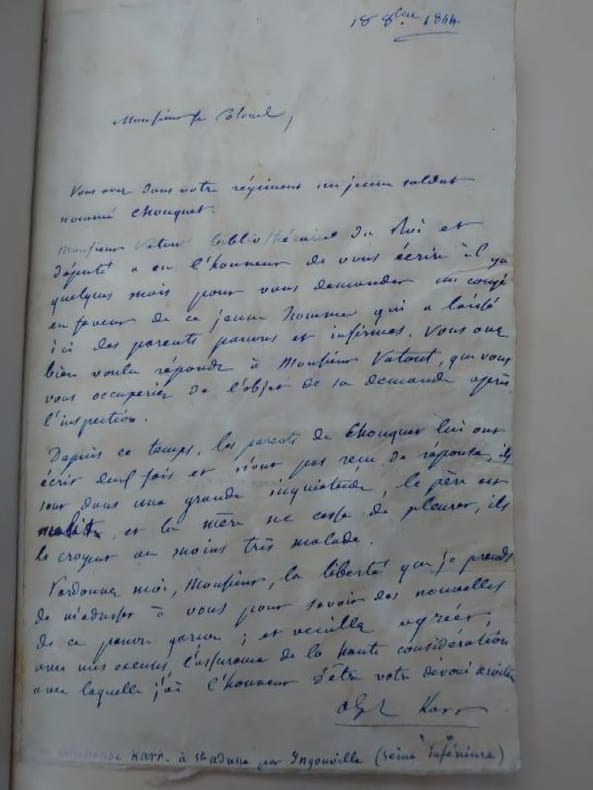 18 8bre 1844
Monsieur le Colonel,
Vous avez dans votre régiment un jeune soldat
nommé Chouquet.
Monsieur Vatout bibliothécaire du Roi et
député a eu l'honneur de vous écrire il y a
quelques mois pour vous demander un congé
en faveur de ce jeune homme qui a laissé
ici des parents pauvres et infirmes. Vous avez
bien voulu répondre à Monsieur Vatout, que vous
vous occuperiez de l'objet de sa demande après
l'inspection.
Depuis ce temps, les parents de Chouquet lui ont
écrit deux fois et n'ont pas reçu de réponse, ils
sont dans une grande inquiétude, le père est
et la mère ne cesse de pleurer, ils
le croyent au moins très malade.
Pardonnez moi, Monsieur, la liberté que je prends
de m'adresser à vous pour savoir des nouvelles
de ce pauvre garçon ; et veuillez agréer,
avec mes excuses l'assurance de la haute considération
avec laquelle j'ai l'honneur d'être votre dévoué serviteur
Karr
Alphonse Karr à Ste adresse par Ingouville (Seine inférieure)